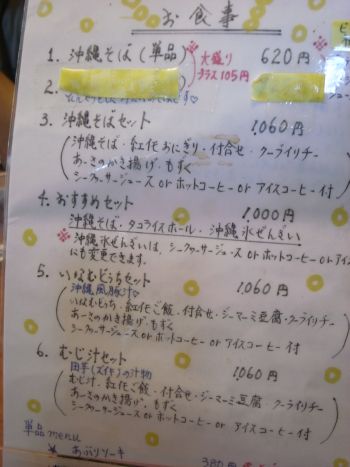 お食事
1. 沖縄そば(単品) 620円
※大盛り
プラス105円
2.
3. 沖縄そばセット 1,060円
(沖縄そば・紅花おにぎり・付合せ・クーブイリチー
あーさのかき揚げ・もずく
シークヮーサージュース or ホットコーヒー or アイスコーヒー付)
4. おすすめセット 1,000円
沖縄そば・タコライスボール・沖縄氷ぜんざい
※沖縄氷ぜんざいは、シークヮーサージュース or ホットコーヒー or アイ
にも変更できます。
5. いなむどぅちセット 1,060円
沖縄風豚汁
(いなむどぅち・紅花ご飯・付合せ・ジーマーミ豆腐・クーブイリチー
あーさのかき揚げ・もずく
シークヮーサージュース or ホットコーヒー or アイスコーヒー付)
6. むじ汁セット 1,060円
田芋(ズイキ)の汁物
(むじ汁・紅花ご飯・付合せ・ジーマーミ豆腐・クーブイリチー
あーさのかき揚げ・もずく
シークヮーサージュース or ホットコーヒー or アイスコーヒー付)
単品 menu
あぶりソーキ 380円